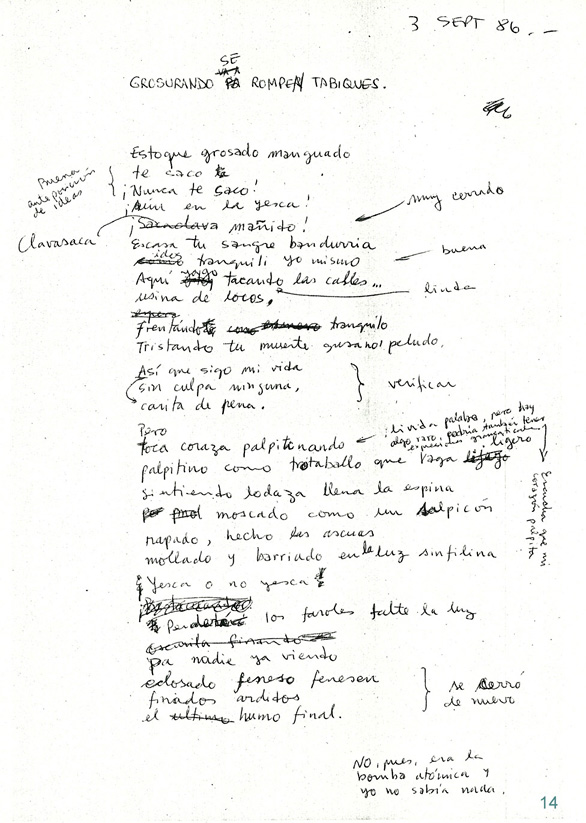 3 SEPT 86. -
SE
VA A
GROSURANDO PA ROMPER TABIQUES.
Estoque grosado manguado
te saco
¡Nunca te saco!
¡Aiñi en la yesca!
¡Sacaclava mañido!
Escasa tu sangre bandurria
tranquili yo mismo
Aquí yago tacando las calles...
usina de locos,
espera
frentándote tranquilo
Tristando tu muerte gusano! peludo.
Así que sigo mi vida
sin culpa ninguna,
carita de pena.
Pero
toca coraza palpitonando
palpitino como trotaballo que vaga ligero
sintiendo lodaza llena la espina
moscado como un salpicón
napado, hecho las ascuas
mollado y barriado en la luz sinfilina
¡Yesca o no yesca!
los faroles falte la luz
finando
pa nadie ya viendo
eclosado feneso fenesen
finados arditos
el ultimo humo final.
Buena
anteposición
de ideas
Clavasaca
muy cerrado
buena
linda
verificar
linda palabra, pero hay
algo raro, podría también tener
Escucha que mi
corazón palpita
se cerró
de nuevo
NO, pues, era la
bomba atómica y
yo no sabía nada.
14